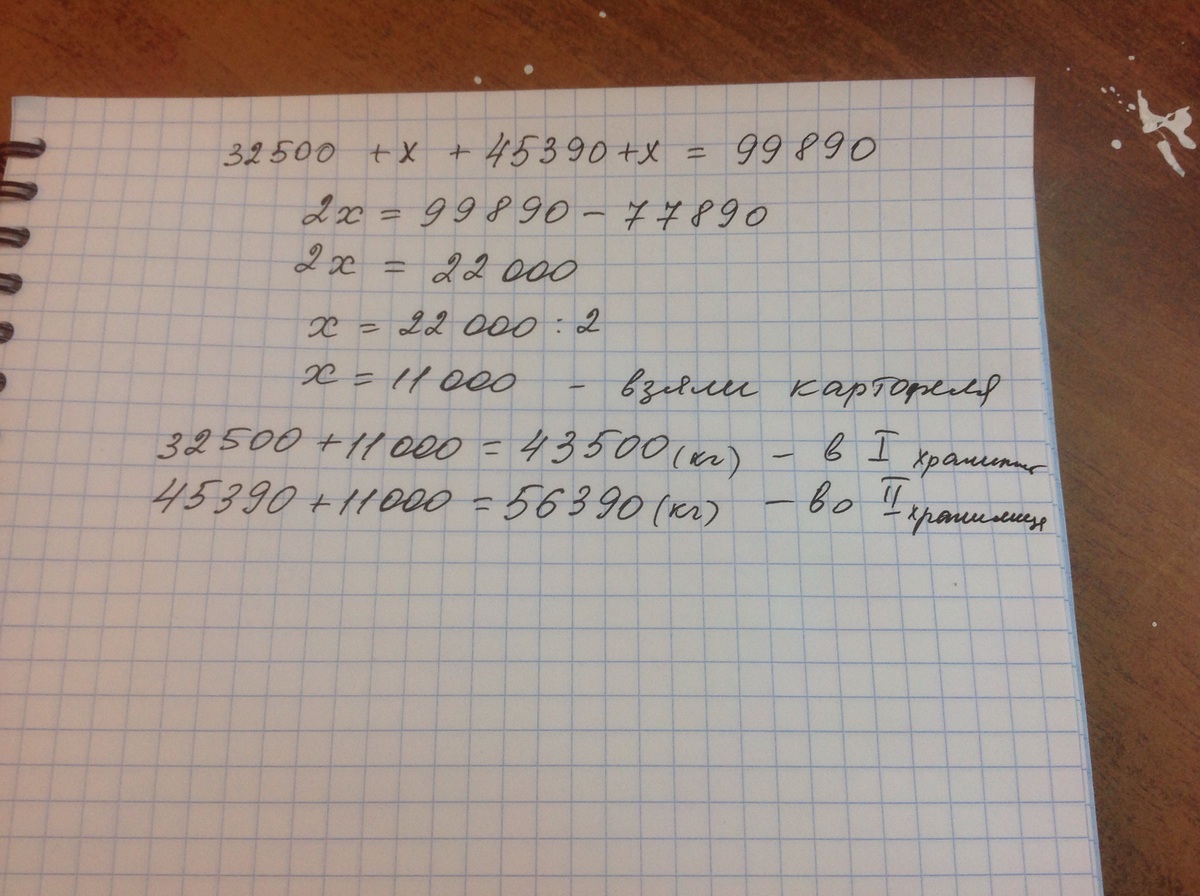 32500 + x + 45390 + x = 99890
2x = 99890 - 77890
2x = 22 000
x = 22 000 : 2
x = 11 000 - взяли картофеля
32500 + 11 000 = 43500 (кг) - в I
45390 + 11000 = 56390 (кг) - во II хранилище